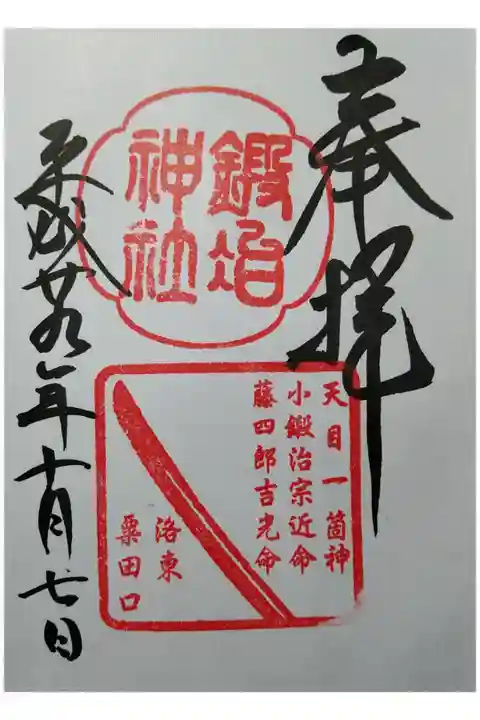 奉拝
鍛冶
神社
天目一箇神
小鍛治宗近命
藤四郎吉光命
洛東
粟田口
平成廿九年十月七日